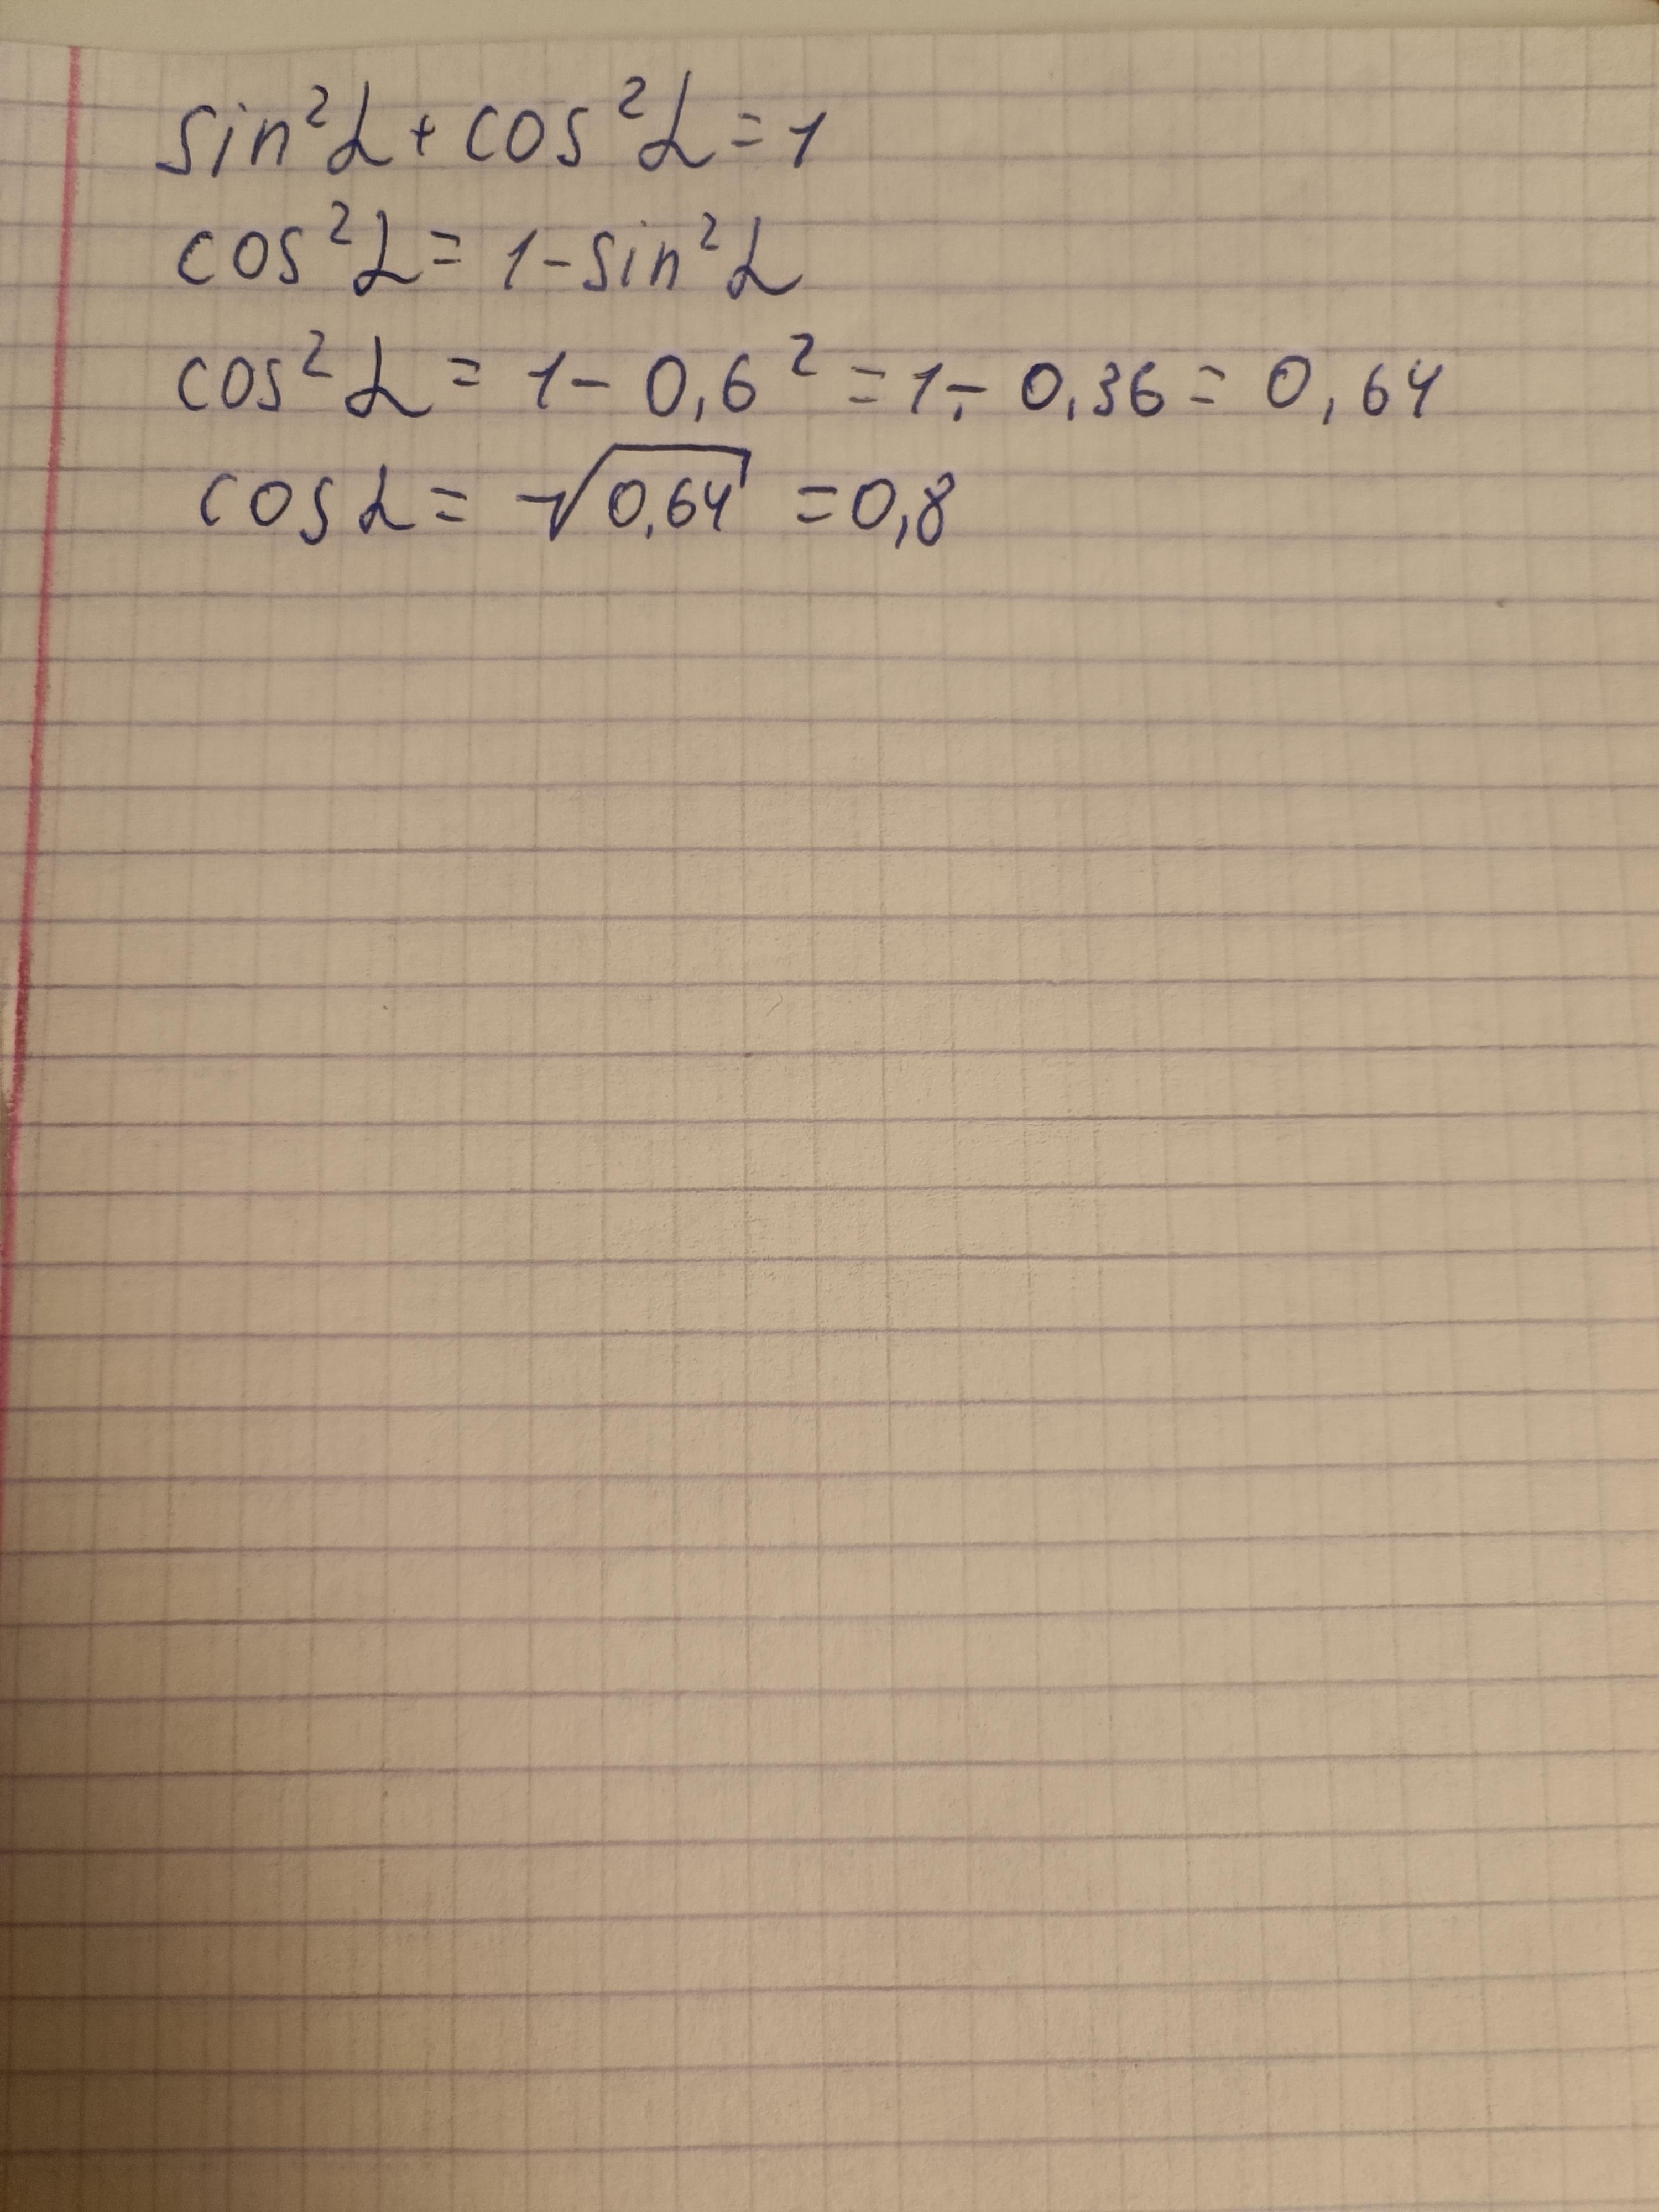 sin²α + cos²α = 1
cos²α = 1 - sin²α
cos²α = 1 - 0,6² = 1 - 0,36 = 0,64
cosα = √0,64 = 0,8